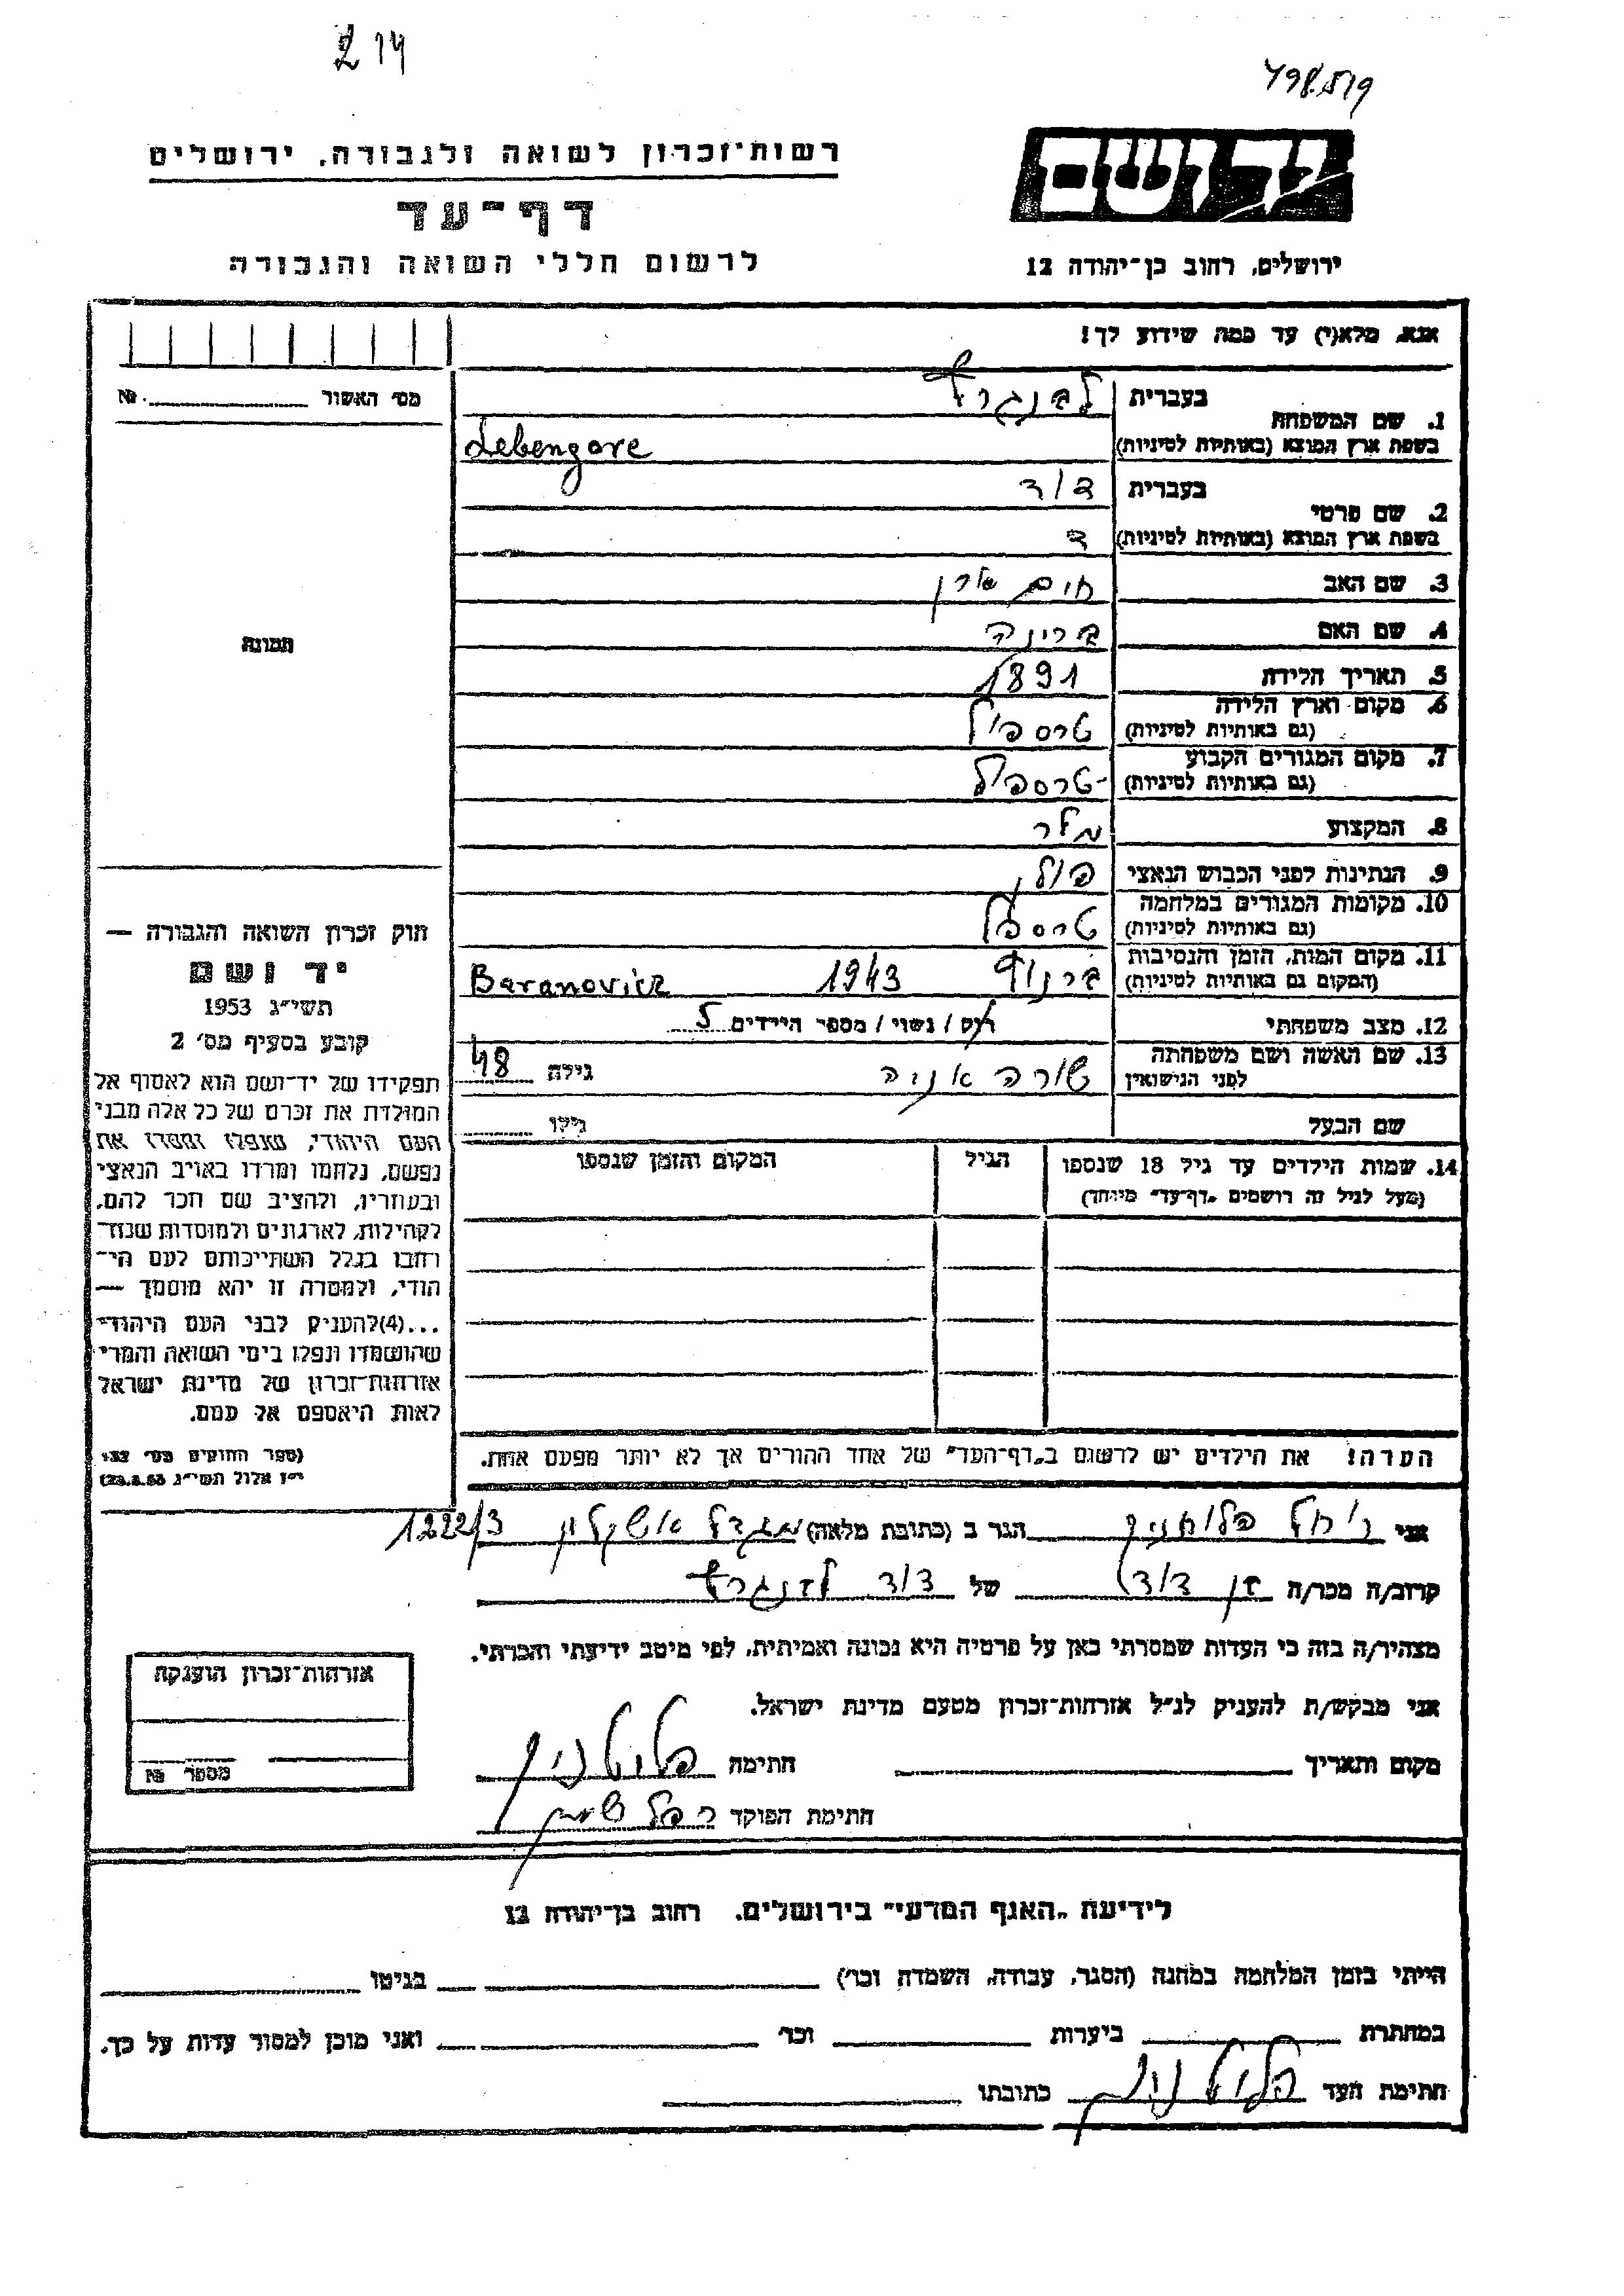 214
798519
יד ושם
רשות־זכרון לשואה ולגבורה, ירושלים
דף־עד
לרשום חללי השואה והגבורה
ירושלים, רחוב בן־יהודה 12
אנא, מלא(י) עד כמה שידוע לך!
מס׳ האשור № 
1. שם המשפחה בעברית
בשפת ארץ המוצא (באותיות לטיניות) Lebengore
2. שם פרטי בעברית דוד
בשפת ארץ המוצא (באותיות לטיניות) ד
3. שם האב חיים
4. שם האם ברינה
5. תאריך הלידה 1891
6. מקום וארץ הלידה
(גם באותיות לטיניות)
7. מקום המגורים הקבוע
(גם באותיות לטיניות)
8. המקצוע
9. הנתינות לפני הכבוש הנאצי פולן
10. מקומות המגורים במלחמה
(גם באותיות לטיניות)
11. מקום המות, הזמן והנסיבות
(המקום גם באותיות לטיניות) 1943 Baranovicz
12. מצב משפחתי רוק / נשוי / מספר הילדים 5
13. שם האשה ושם משפחתה
לפני הנישואין שורה גילה 48
שם הבעל גילו
14. שמות הילדים עד גיל 18 שנספו
(מעל לגיל זה רושמים „דף־עד״ מיוחד)
הגיל
המקום והזמן שנספו
תמונה
חוק זכרון השואה והגבורה —
יד ושם
תשי״ג 1953
קובע בסעיף מס׳ 2
תפקידו של יד־ושם הוא לאסוף אל
המולדת את זכרם של כל אלה מבני
העם היהודי, שנפלו ומסרו את
נפשם, נלחמו ומרדו באויב הנאצי
ובעוזריו, ולהציב שם וזכר להם,
לקהילות, לארגונים ולמוסדות שנחרבו
בגלל השתייכותם לעם היהודי,
ולמטרה זו יהא מוסמך —
...(4) להעניק לבני העם היהודי
שהושמדו ונפלו בימי השואה והמרי
אזרחות־זכרון של מדינת ישראל
לאות היאספם אל עמם.
(ספר החוקים מס׳ 132
י״ז אלול תשי״ג 28.8.53)
הערה! את הילדים יש לרשום ב„דף־העד״ של אחד ההורים אך לא יותר מפעם אחת.
אני רחל הגר ב (כתובת מלאה) מגדל אשקלון 1222/3
קרוב/ה מכר/ה בן דוד של דוד
מצהיר/ה בזה כי העדות שמסרתי כאן על פרטיה היא נכונה ואמיתית, לפי מיטב ידיעתי והכרתי.
אני מבקש/ת להעניק לנ״ל אזרחות־זכרון מטעם מדינת ישראל.
מקום ותאריך חתימה
חתימת הפוקד
אזרחות־זכרון הוענקה
מספר №
לידיעת „האגף המדעי״ בירושלים. רחוב בן־יהודה 12
הייתי בזמן המלחמה במחנה (הסגר, עבודה, השמדה וכו׳) בגיטו
במחתרת ביערות וכו׳ ואני מוכן למסור עדות על כך.
חתימת העד כתובתו